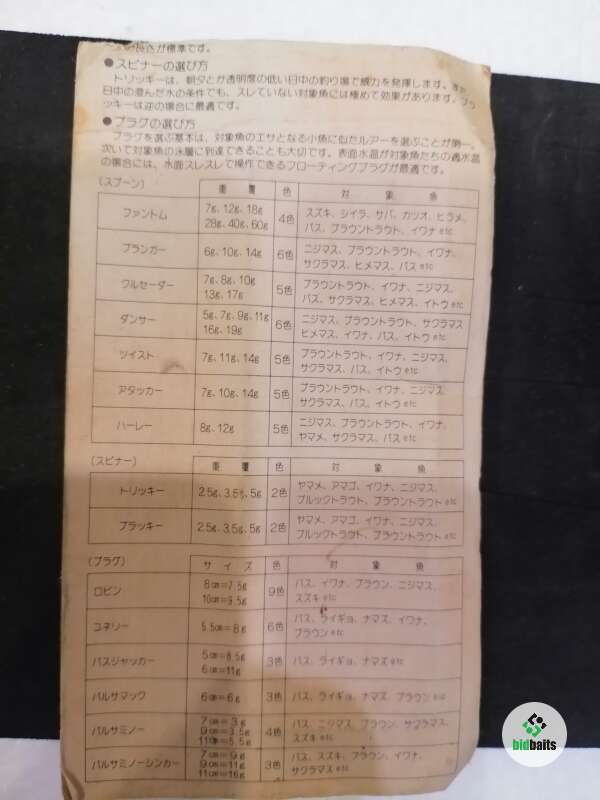 長さが標準です。
●スピナーの選び方
トリッキーは、朝夕とか透明度の低い日中の釣り場で威力を発揮します。
日中の澄んだ水の条件でも、スレていない対象魚には極めて効果があります。ブラ
ッキーは逆の場合に最適です。
●プラグの選び方
プラグを選ぶ基本は、対象魚のエサとなる小魚に似たルアーを選ぶことが第一。
次いで対象魚の泳層に到達できることも大切です。表面水温が対象魚たちの適水温
の場合には、水面スレスレで操作できるフローティングプラグが最適です。
(スプーン) 重量 色 対象魚
ファントム 7g、12g、18g 28g、40g、60g 4色 スズキ、シイラ、サバ、カツオ、ヒラメ、 バス、ブラウントラウト、イワナetc
プランガー 6g、10g、14g 6色 ニジマス、ブラウントラウト、イワナ、 サクラマス、ヒメマス、バスetc
クルセーダー 7g、8g、10g 13g、17g 5色 ブラウントラウト、イワナ、ニジマス、 バス、サクラマス、ヒメマス、イトウetc
ダンサー 5g、7g、9g、11g 16g、19g 6色 ニジマス、ブラウントラウト、サクラマス ヒメマス、イワナ、バス、イトウetc
ツイスト 7g、11g、14g 5色 ブラウントラウト、イワナ、ニジマス、 サクラマス、バス、イトウetc
アタッカー 7g、10g、14g 5色 ブラウントラウト、イワナ、ニジマス、 サクラマス、バス、イトウetc
ハーレー 8g、12g 5色 ニジマス、ブラウントラウト、イワナ、 ヤマメ、サクラマス、バスetc
(スピナー) 重量 色 対象魚
トリッキー 2.5g、3.5g、5g 2色 ヤマメ、アマゴ、イワナ、ニジマス、 ブルックトラウト、ブラウントラウトetc
ブラッキー 2.5g、3.5g、5g 2色 ヤマメ、アマゴ、イワナ、ニジマス、 ブルックトラウト、ブラウントラウトetc
(プラグ) サイズ 色 対象魚
ロビン 8cm=7.5g 10cm=9.5g 9色 バス、イワナ、ブラウン、ニジマス、 スズキetc
コネリー 5.5cm=8g 6色 バス、ライギョ、ナマズ、イワナ、 ブラウンetc
バスジャッカー 5cm=8.5g 6cm=11g 3色 バス、ライギョ、ナマズetc
バルサマック 6cm=6g 3色 バス、ライギョ、ナマズ、ブラウンetc
バルサミノー 7cm=3g 9cm=3.5g 11cm=5.5g 4色 バス、ニジマス、ブラウン、サクラマス、 スズキetc
バルサミノーシンカー 7cm=9g 9cm=11g 11cm=16g 3色 バス、スズキ、ブラウン、イワナ、 サクラマスetc
bidbaits